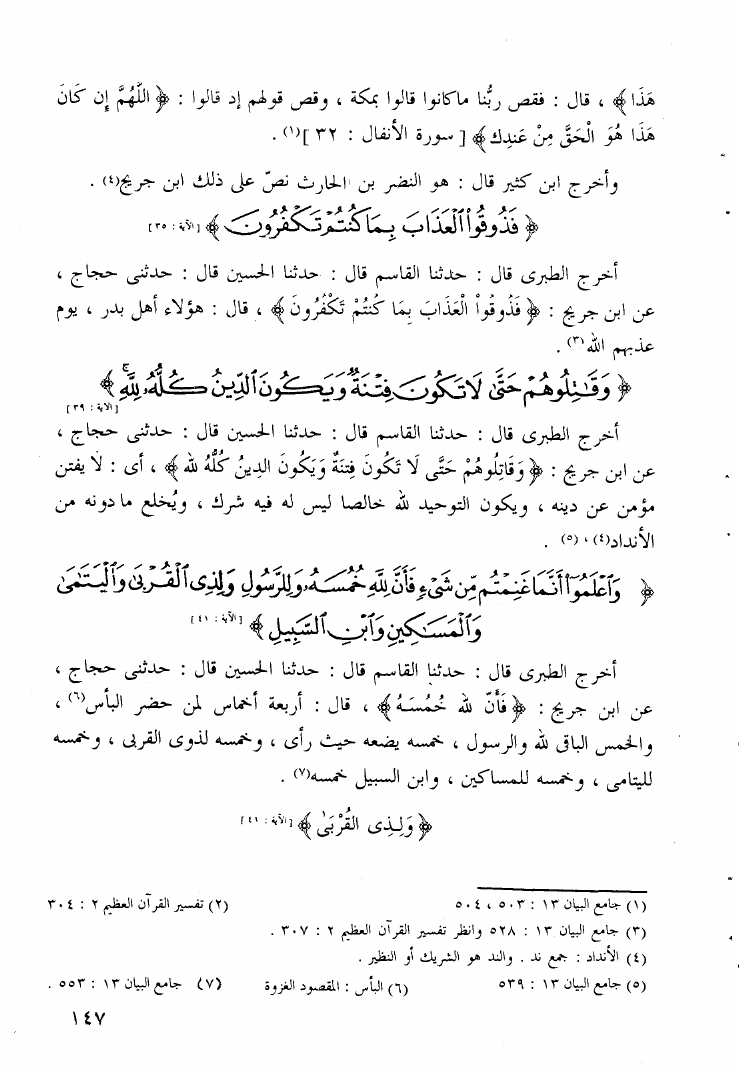 هَذَا﴾ ، قال : فقص ربُّنا ماكانوا قالوا بمكة ، وقص قولهم إد قالوا : ﴿ اللَّهُمَّ إِن كَانَ
هَذَا هُوَ الْحَقَّ مِنْ عَندِك﴾ [ سورة الأنفال : ٣٢ ](١) .
وأخرج ابن كثير قال : هو النضر بن الحارث نصّ على ذلك ابن جريج(٤) .
﴿ فَذُوقُوا۟ ٱلْعَذَابَ بِمَا كُنتُمْ تَكْفُرُونَ ﴾ [الآية : ٣٥]
أخرج الطبرى قال : حدثنا القاسم قال : حدثنا الحسين قال : حدثنى حجاج ،
عن ابن جريج : ﴿ فَذُوقُواْ الْعَذَابَ بِمَا كُنتُمْ تَكْفُرُونَ ﴾ ، قال : هؤلاء أهل بدر ، يوم
عذبهم الله(٣) .
﴿ وَقَٰتِلُوهُمْ حَتَّىٰ لَا تَكُونَ فِتْنَةٌ وَيَكُونَ ٱلدِّينُ كُلُّهُۥ لِلَّهِ ۚ ﴾
[الآية : ٣٩]
أخرج الطبرى قال : حدثنا القاسم قال : حدثنا الحسين قال : حدثنى حجاج ،
عن ابن جريج : ﴿ وَقَاتِلُوهُمْ حَتَّى لَا تَكُونَ فِتْنَةٌ وَيَكُونَ الدِينُ كُلُّهُ لله ﴾ ، أى : لا يفتن
مؤمن عن دينه ، ويكون التوحيد لله خالصا ليس له فيه شرك ، ويُخلع مادونه من
الأنداد(٤) ، (٥) .
﴿ وَٱعْلَمُوٓا۟ أَنَّمَا غَنِمْتُم مِّن شَىْءٍ فَأَنَّ لِلَّهِ خُمُسَهُۥ وَلِلرَّسُولِ وَلِذِى ٱلْقُرْبَىٰ وَٱلْيَتَٰمَىٰ
وَٱلْمَسَٰكِينِ وَٱبْنِ ٱلسَّبِيلِ ﴾ [الآية : ٤١]
أخرج الطبرى قال : حدثنا القاسم قال : حدثنا الحسين قال : حدثنى حجاج ،
عن ابن جريج : ﴿ فَأَنّ لله خُمُسَهُ ﴾ ، قال : أربعة أخماس لمن حضر البأس(٦) ،
والخمس الباقى لله والرسول ، خمسه يضعه حيث رأى ، وخمسه لذوى القربى ، وخمسه
لليتامى ، وخمسه للمساكين ، وابن السبيل خمسه(٧) .
﴿ وَلِذِى الْقُرْبَىٰ ﴾ [الآية : ٤١]
(١) جامع البيان ١٣ : ٥٠٣ ، ٥٠٤ (٢) تفسير القرآن العظيم ٢ : ٣٠٤
(٣) جامع البيان ١٣ : ٥٢٨ وانظر تفسير القرآن العظيم ٢ : ٣٠٧ .
(٤) الأنداد : جمع ند . والند هو الشريك أو النظير .
(٥) جامع البيان ١٣ : ٥٣٩ (٦) البأس : المقصود الغزوة (٧) جامع البيان ١٣ : ٥٥٣ .
١٤٧